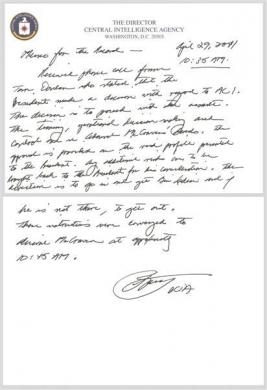 THE DIRECTOR
CENTRAL INTELLIGENCE AGENCY
WASHINGTON, D.C. 20505
Memo for the Record - April 29, 2011
10:35 AM.
Received phone call from
Tom Donilon who stated that the
President made a decision with regard to AC1.
The decision is to proceed with the assault.
The timing, operational decision making and
control are in Admiral McRaven's hands. The
approval is provided on the risk profile presented
to the President. Any additional risks are to be
brought back to the President for his consideration. The
direction is to go in and get bin Laden and if
he is not there, to get out.
Those instructions were conveyed to
Admiral McRaven at approximately
10:45 AM.
DCIA